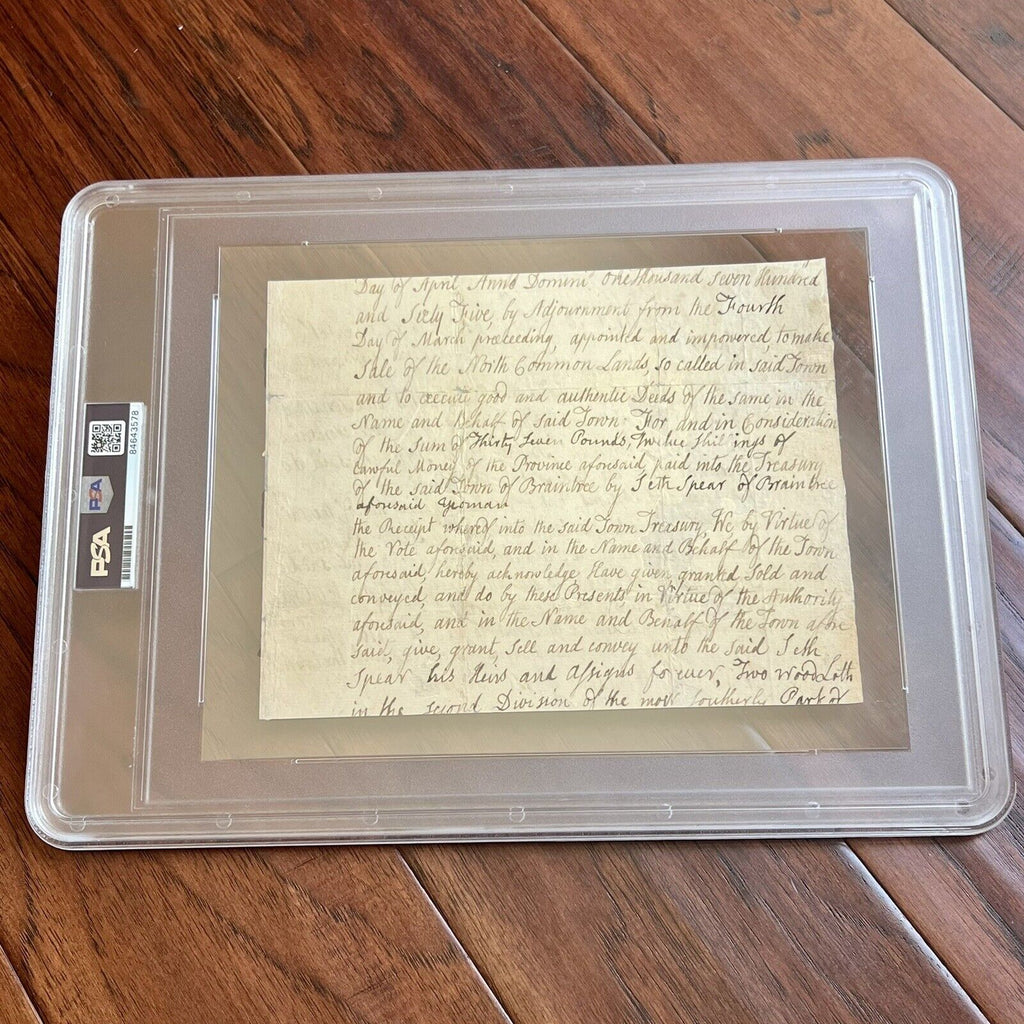 Day of April Anno Domini One thousand Seven Hundred
and Sixty Five, by Adjournment from the Fourth
Day of March preceeding, appointed and impowered, to make
Sale of the North Common Lands, so called in said Town
and to execute good and authentic Deeds of the same in the
Name and Behalf of said Town For and in Consideration
of the Sum of Thirty Seven Pounds, Twelve Shillings of
Lawful Money of the Province aforesaid, paid into the Treasury
of the said Town of Braintree by Seth Spear of Braintree
aforesaid Yeoman
the Receipt whereof into the said Town Treasury, We, by Virtue of
the Vote aforesaid, and in the Name and Behalf of the Town
aforesaid, hereby acknowledge Have given granted Sold and
conveyed, and do by these Presents in Virtue of the Authority
aforesaid, and in the Name and Behalf of the Town afore
said, give, grant, Sell and convey unto the said Seth
Spear his Heirs and Assigns forever, Two Wood Lotts
in the second Division of the most southerly Part of
PSA
PSA
84643578